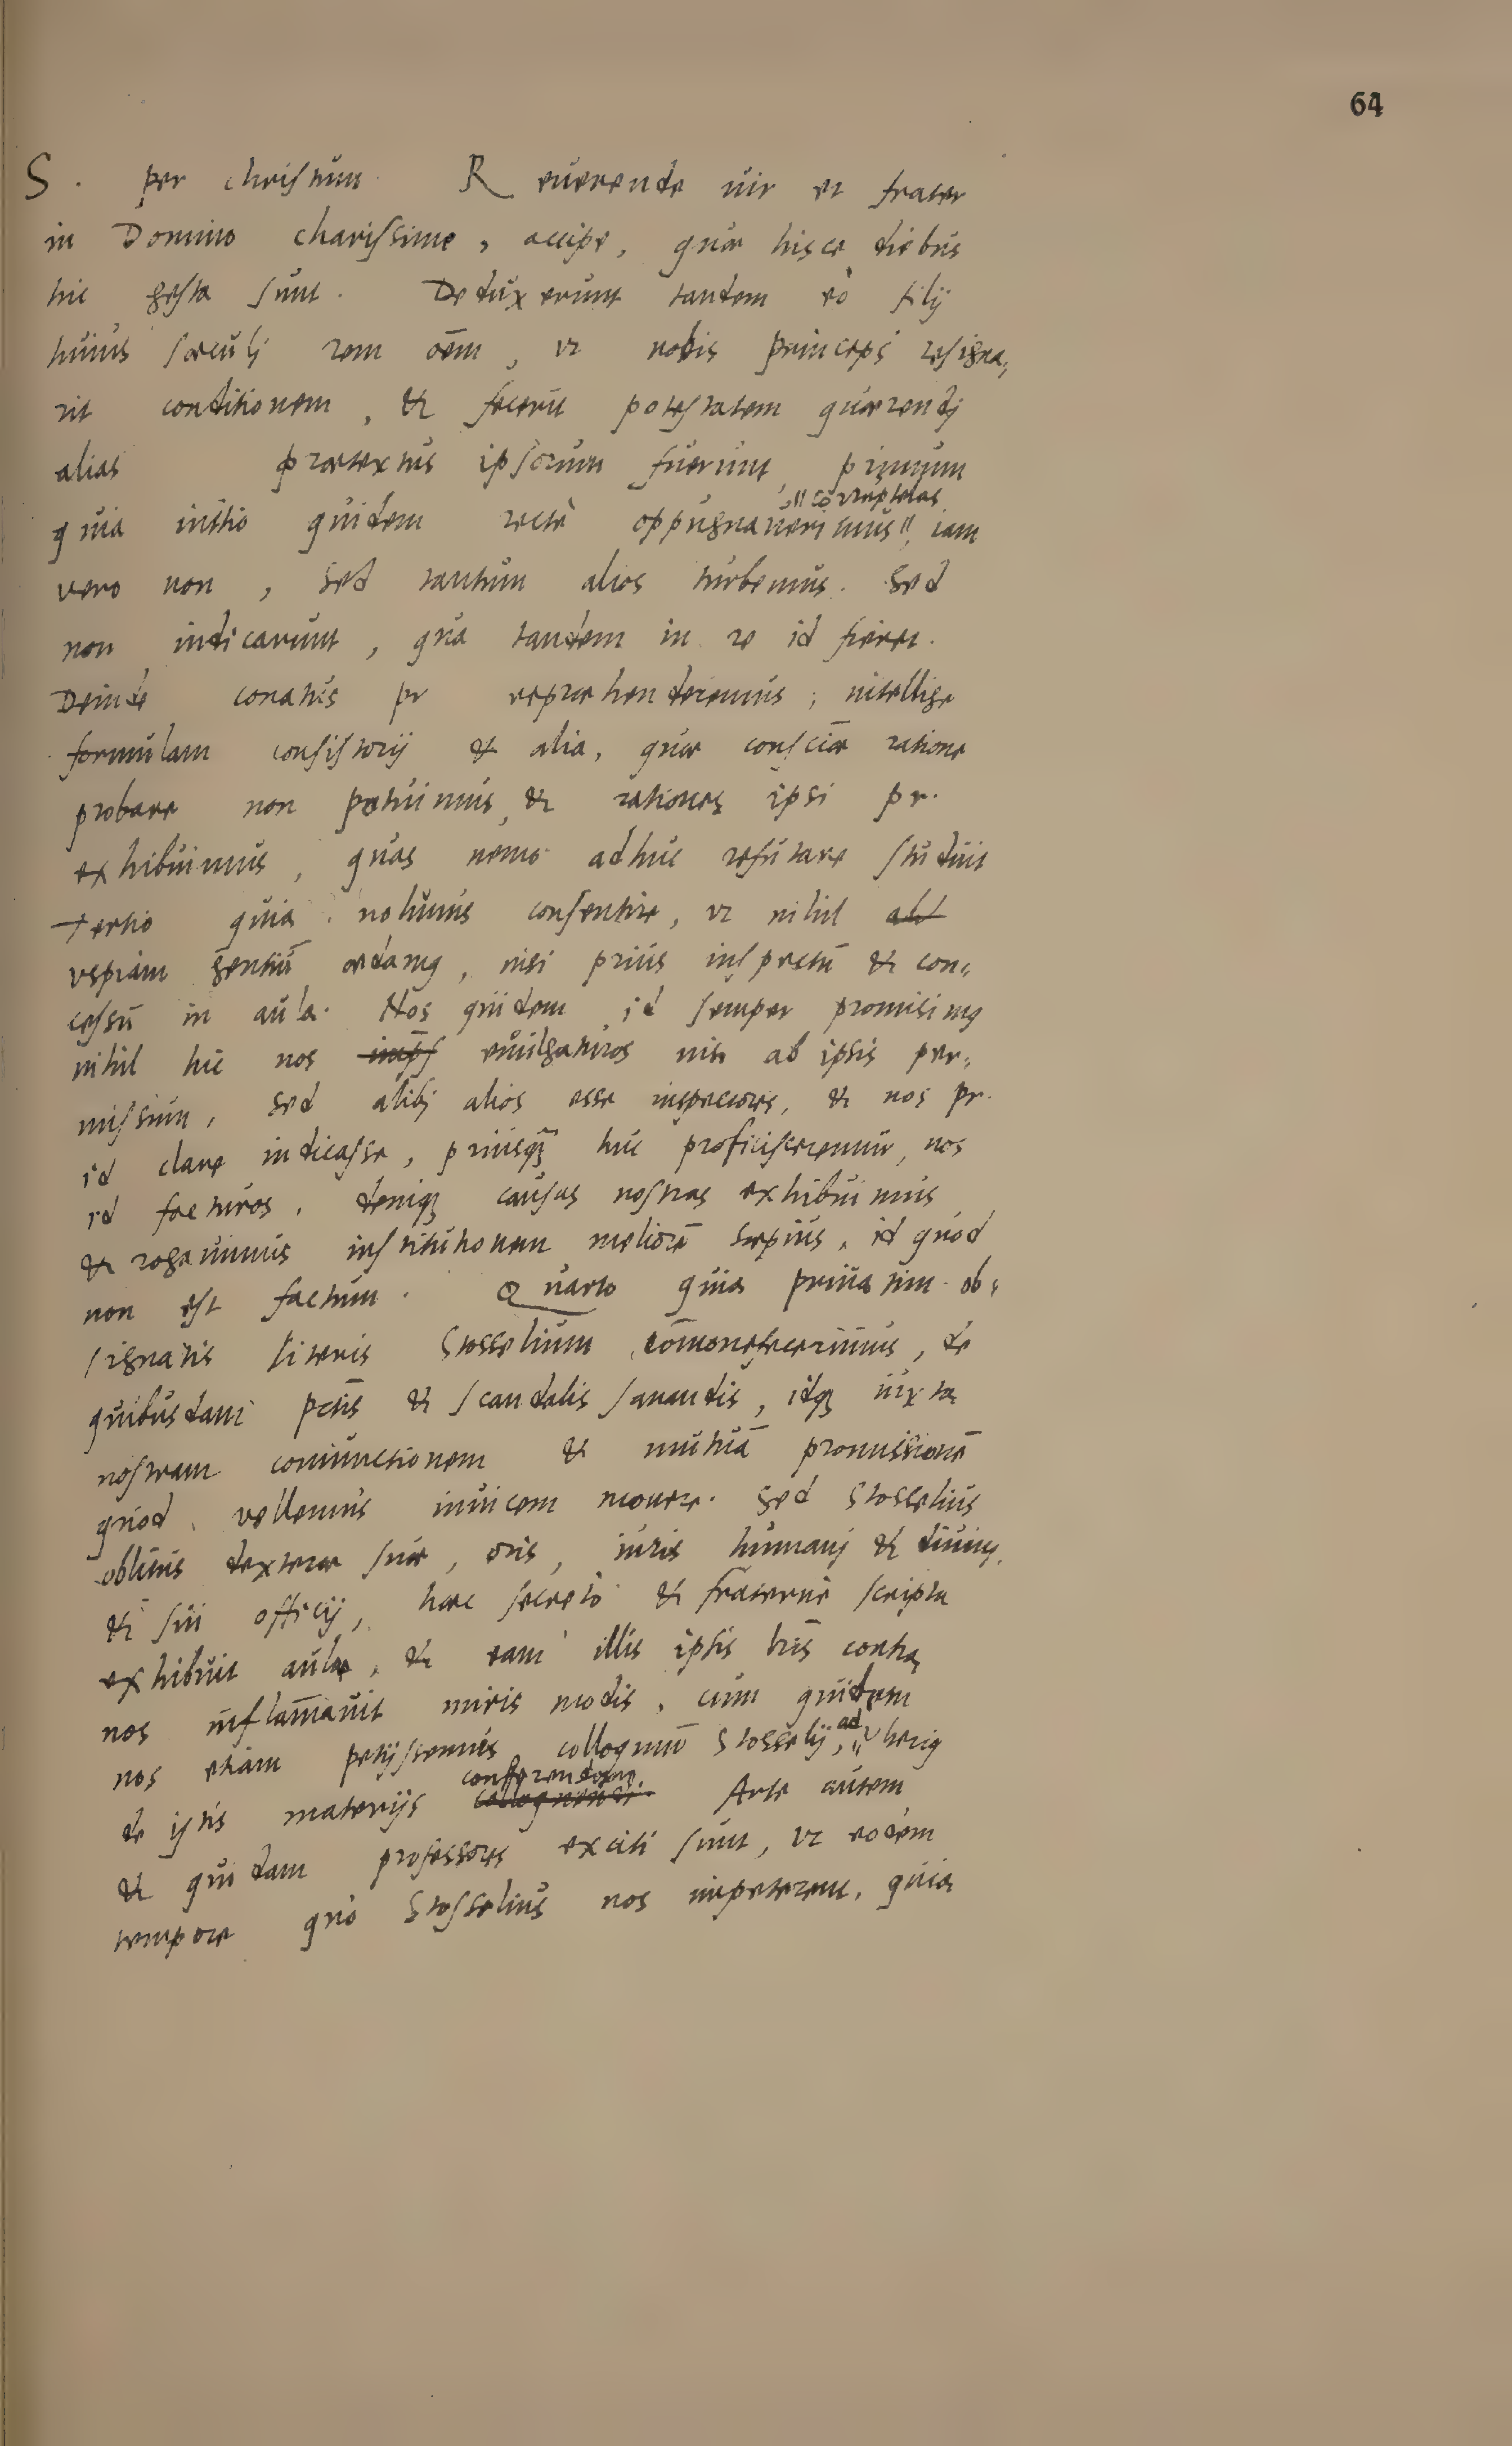 64
S. per christum Reuerende uir et frater
in Domino charissime, accipe, quæ hisce diebus
hic gesta sunt. Deduxerunt tandem eò filij
huius sæculj rem oēm, vt nobis princeps resigna,
rit conditionem, & fecerit potestatem quærendj
alias prætextus ipsorum fuerunt primum
corruptelas
quia initio quidem rectè oppugnauerimus, iam
vero non, sed tantum alios turbemus. Sed
non indicarunt, qua tandem in re id fieret.
Deinde conatus pr repræhenderemus, intellige
formulam consistorij & alia, quæ consciæ ratione
probare non potuimus, & rationes ipsi pr.
exhibuimus, quas nemo adhuc refutare studuit
Tertio quia nolumus consentire, vt nihil
vspiam gentiū ædamq, nisi prius inspectū & con,
cessū in aula. Nos quidem id semper promisimq
nihil hic nos euulgaturos nisi ab ipsis per,
missum, sed alibj alios esse inspectores, & nos pr.
id clare indicasse, priusqȝ huc proficisceremur, nos
id facturos. deniqȝ causas nostras exhibuimus
& rogauimus institutionem meliorē sæpius, id quod
non est factum. Quarto quia priuatim ob,
signatis literis Stosselium cōmonefecerimus, de
quibusdam pctīs & scandalis sanandis, idqȝ iuxta
nostram coniunctionem & mutuā promissionē
quod vellemus inuicem monere. Sed Stosselius
oblitus dexteræ suæ, oris, iuris humanj & diuinj,
& sui officij, hæc secretò & fraternè scripta
exhibuit aulæ, & eam illis ipsis lrīs contra
nos inflāmauit miris modis, cum quidem
nos etiam petijssemus colloquiū Stosselij, ad vberiq
conferendum
de istis materijs Arte autem
& quidam professores exciti sunt, vt eodem
tempore quo Stosselius nos impeterent, quia